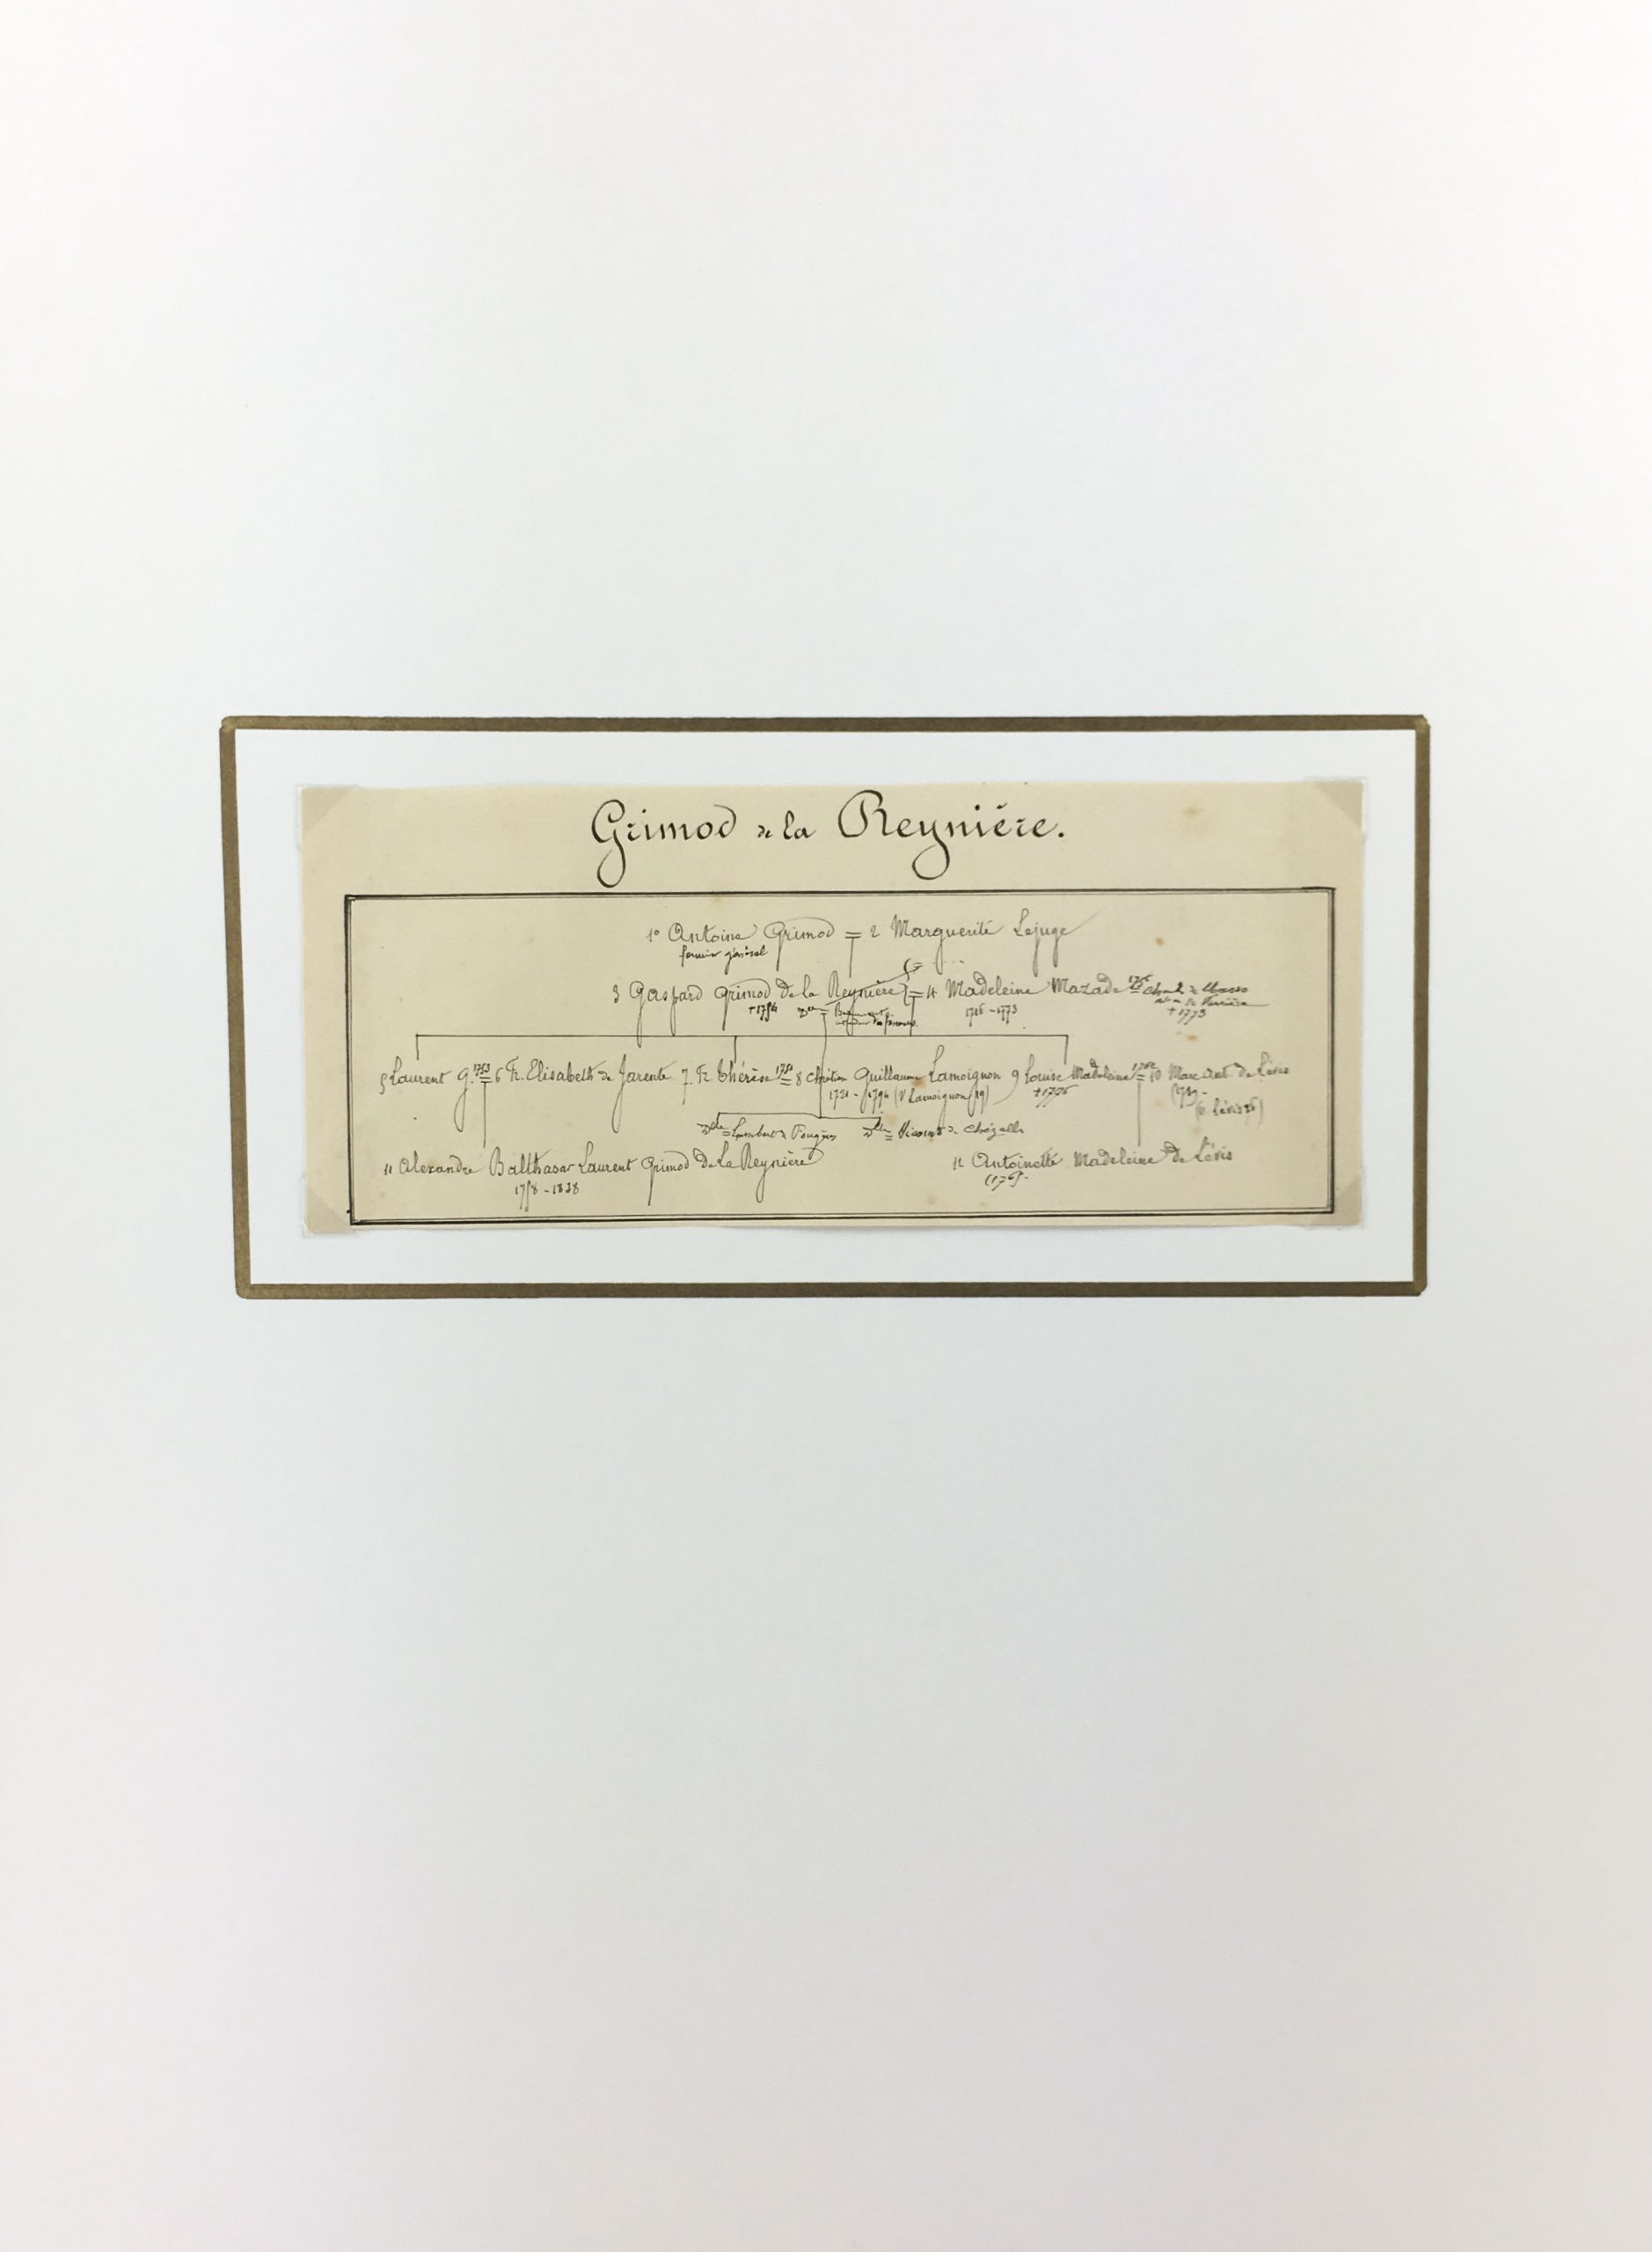 Grimod de la Reynière.
1° Antoine Grimod = 2 Marguerite Lejuge
fermier général
3 Gaspard Grimod De la Reynière = 4 Madeleine Mazade
+1754 1716-1773
+1773
5 Laurent G. 1753 = 6 Fr. Elisabeth de Jarente 7. Fr Thérèse = 8 Chrétien Guillaume Lamoignon 9 Louise Madeleine = 10 Marc Ant. de Lévis
1721 - 1794 (V Lamoignon 19)
(v. Lévis 26)
Dlle = Lambert Dlle = Vicomte de Chézelle
11 Alexandre Balthasar Laurent Grimod De La Reynière 12 Antoinette Madeleine de Lévis
1758-1838